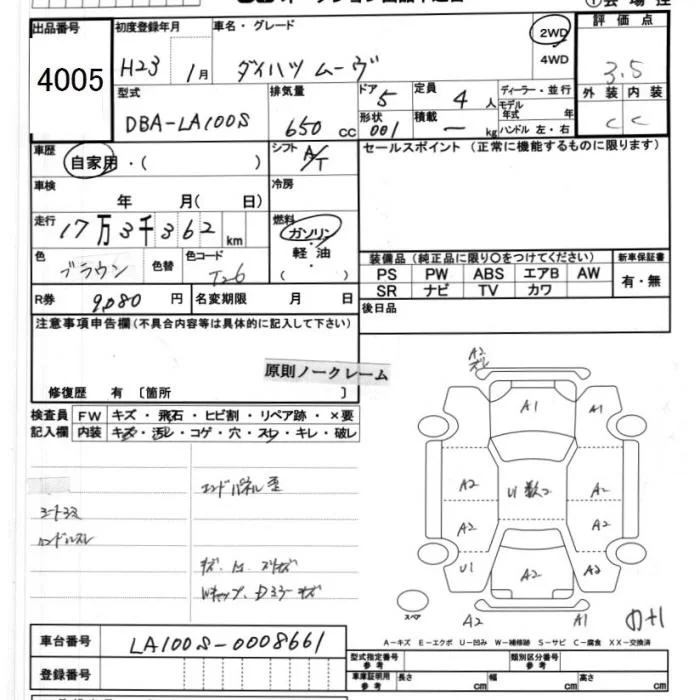 出品番号 初度登録年月 車名・グレード 2WD 評価点
4005 H23 1月 ダイハツ ムーヴ 4WD 3.5
型式 排気量 ドア 定員 ディーラー・並行 外装 内装
DBA-LA100S 650 cc 5 4 人 モデル年式 年 C C
形状 001 積載 ー kg ハンドル 左・右
車歴 自家用・( ) シフト A/T セールスポイント (正常に機能するものに限ります)
車検 年 月( 日) 冷房
走行 17万3千362 km 燃料 ガソリン・軽油・( )
色 ブラウン 色替 色コード T26
装備品 (純正品に限り〇をつけてください) 新車保証書
PS PW ABS エアB AW 有・無
SR ナビ TV カワ
R券 9,080 円 名変期限 月 日 後日品
注意事項申告欄 (不具合内容等は具体的に記入して下さい)
原則ノークレーム
修復歴 有 〔箇所 〕
検査員 FW キズ・飛石・ヒビ割・リペア跡・×要
記入欄 内装 キズ・汚レ・コゲ・穴・スレ・キレ・破レ
A2
A1 A1
エンドパネル歪
A2 U1 A2
A2 A2
U1 A2 A2
A2 A1
スペア
A-キズ E-エクボ U-凹み W-補修跡 S-サビ C-腐食 XX-交換済
車台番号 LA100S-0008661
型式指定番号 参考 類別区分番号 参考
登録番号 車庫証明用 参考 長さ cm 幅 cm 高さ cm